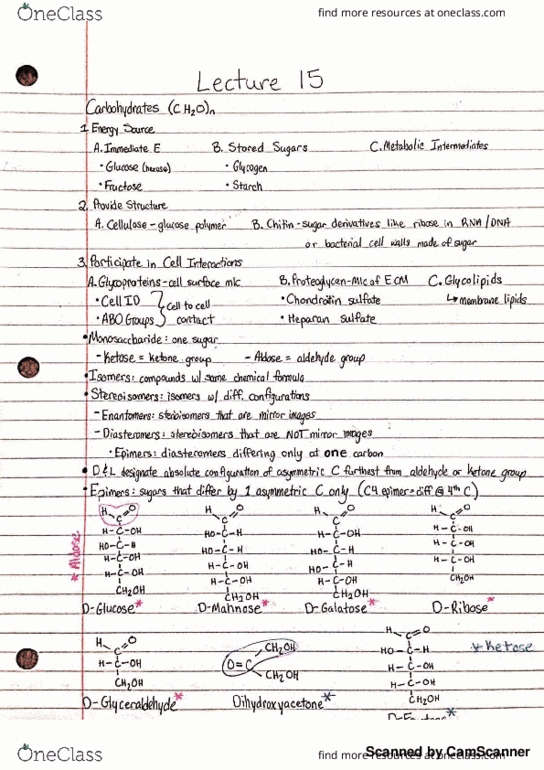 OneClass
find more resources at oneclass.com
Lecture 15
Carbohydrates (CH2O)n
1. Energy Source
A. Immediate E B. Stored Sugars C. Metabolic Intermediates
• Glucose • Glycogen
• Fructose • Starch
2. Provide Structure
A. Cellulose - glucose polymer B. Chitin - sugar derivatives like ribose in RNA/DNA
or bacterial cell walls made of sugar
3. Participate in Cell Interactions
A. Glycoproteins - cell surface mlc B. Proteoglycan - Mlc of ECM C. Glycolipids
• Cell ID cell to cell • Chondroitin sulfate ↳ membrane lipids
• ABO Groups contact • Heparan Sulfate
• Monosaccharide: one sugar
- Ketose = ketone group - Aldose = aldehyde group
• Isomers: compounds w/ same chemical formula
• Stereoisomers: isomers w/ diff. configurations
- Enantomers: that are mirror images
- Diasteromers: stereoisomers that are NOT mirror images
• Epimers: diasteromers differing only at one carbon
• D&L designate absolute configuration of asymmetric C furthest from aldehyde or ketone group
• Epimers: sugars that differ by 1 asymmetric C only (C4 epimer = diff @ 4th C)
* Aldose
H O H O H O H O
C C C C
H-C-OH HO-C-H H-C-OH H-C-OH
HO-C-H HO-C-H HO-C-H H-C-OH
H-C-OH H-C-OH HO-C-H H-C-OH
H-C-OH H-C-OH H-C-OH CH2OH
CH2OH CH2OH CH2OH
D-Glucose* D-Mannose* D-Galatose* D-Ribose*
H O CH2OH H O * Ketose
C O=C C
H-C-OH CH2OH HO-C-H
CH2OH H-C-OH
H-C-OH
CH2OH
D-Glyceraldehyde* Dihydroxyacetone*
OneClass
find more resources at oneclass.com
Scanned by CamScanner